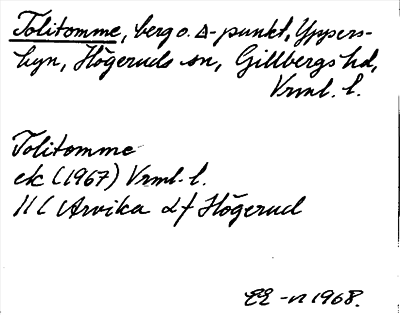 Tolitomme, berg o. Δ-punkt, Yppers-
byn, Högeruds sn, Gillbergs hd,
Vrml. l.
Tolitomme
ek (1967) Vrml. l.
11 C Arvika df Högerud
1968.